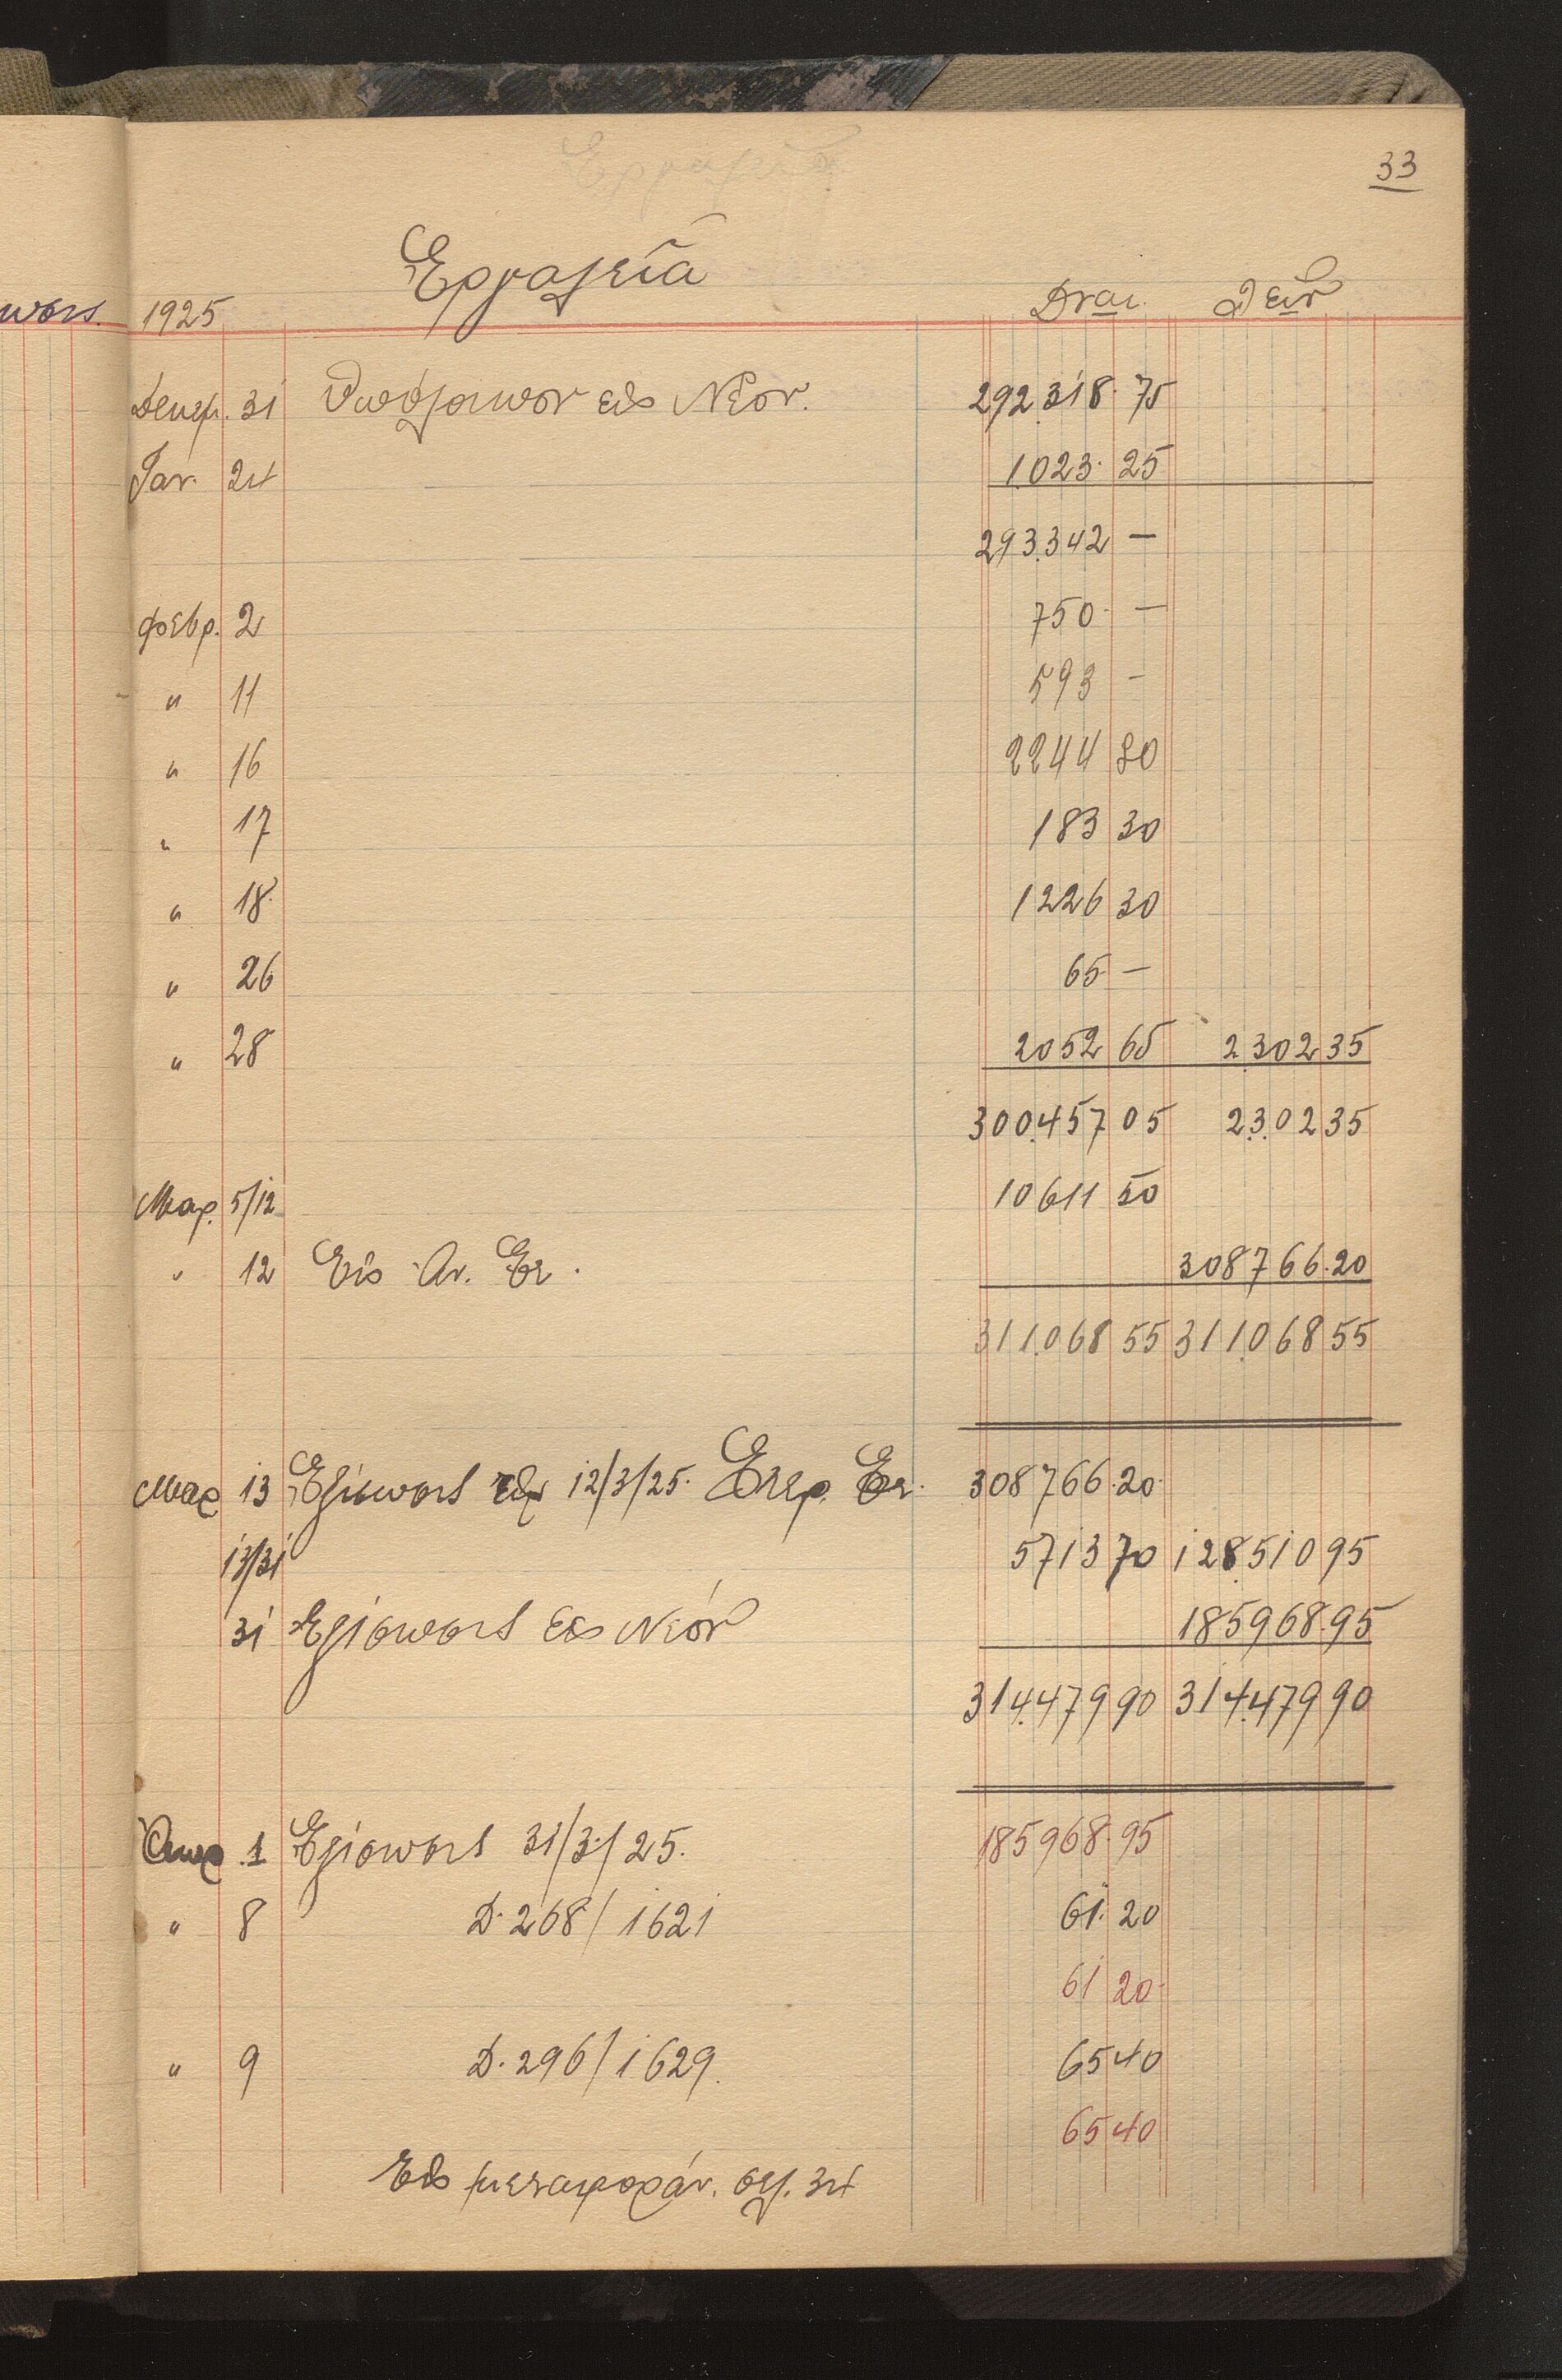 33
Εργαλεία
ωσις. 1925 Δναι. Λειν
Δεκεμ. 31 Υπόλοιπον εις Νέον. 292.318. 75
Ιαν. 24 1.023. 25
293.342 —
Φεβρ. 2 750. —
" 11 593 —
" 16 2244 80
" 17 183 30
" 18 1226 30
" 26 65 —
" 28 2052 65 2.302 35
300.457 05 2.302 35
Μαρ. 5/12 10611 50
" 12 Εις Αν. Ετ. 308766.20
311.068 55 311.068 55
Μαρ 13 Εξίσωσις 12/3/25. Ετερ. Ετ. 308766.20
13/31 5713 70 128.510 95
31 Εξίσωσις εις Νέον 185968.95
314.479 90 314.479 90
Απρ. 1 Εξίσωσις 31/3/25. 185968.95
" 8 Δ. 268/1621 61. 20
61 20
" 9 Δ. 296/1629. 65 40
65 40
Εις μεταφοράν. σελ. 34